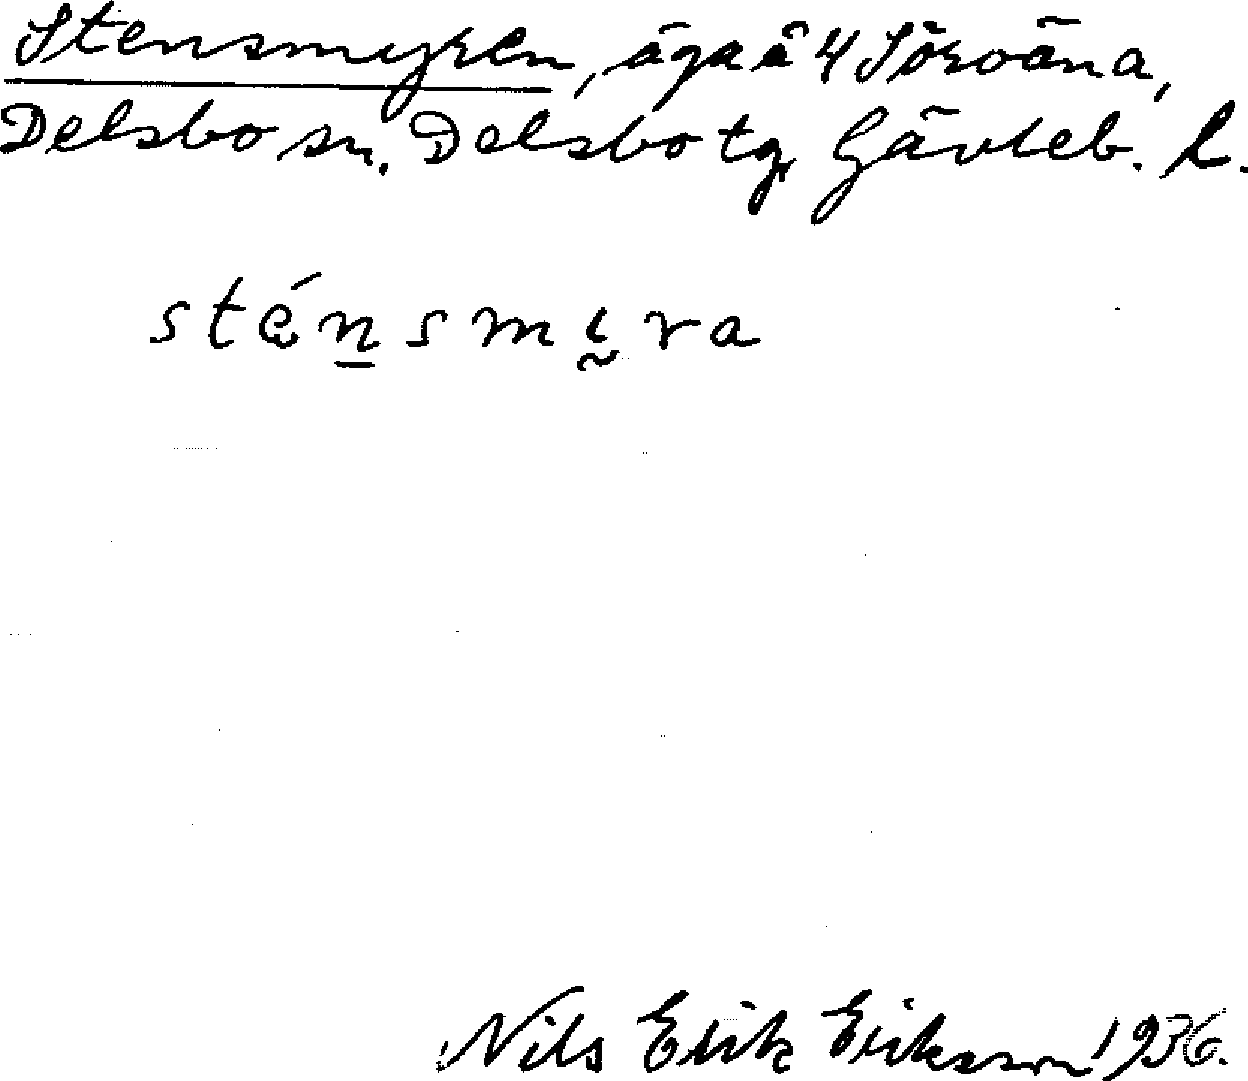 Stensmyren, äga å 4 Söroäna,
Delsbo sn. Delsbo tg, Gävleb. l.
sténsmyra
Nils Erik Eriksson 1936.